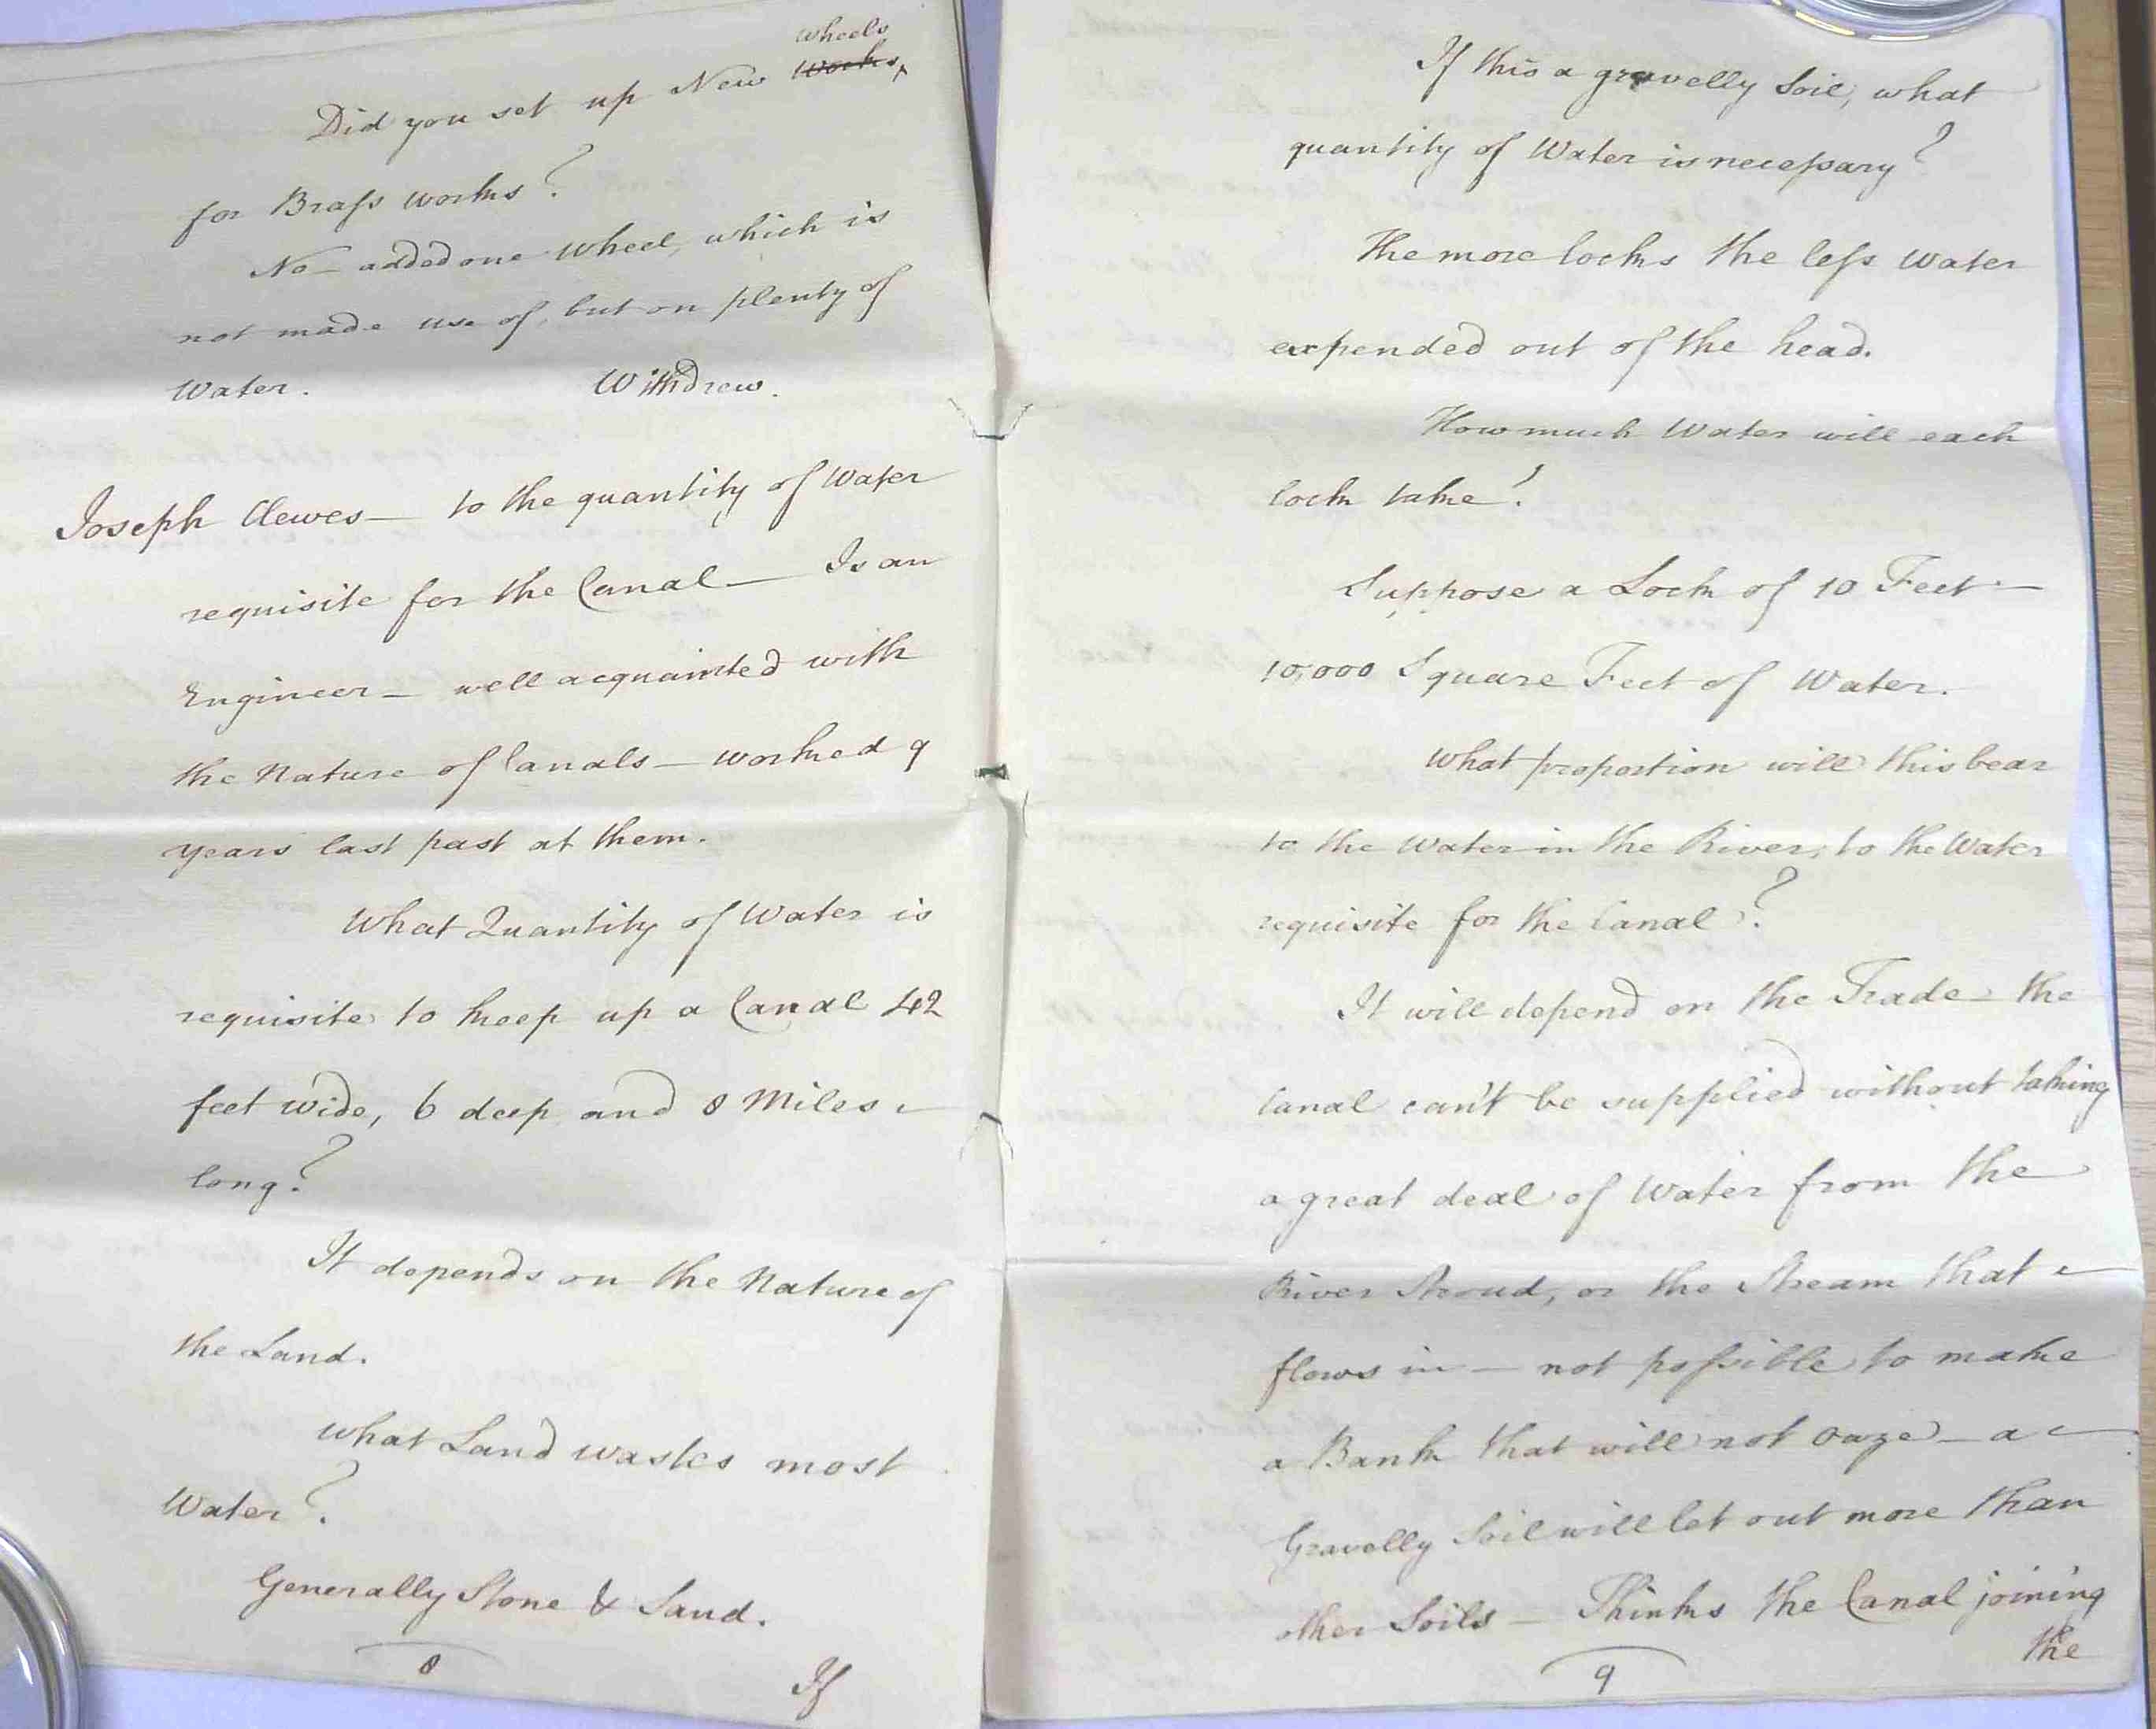 wheels
Did you set up New Works,
for Braſs works?
No – added one wheel, which is
not made use of, but on plenty of
Water. Withdrew.
Joseph Clewes — to the quantity of Water
requisite for the Canal — Is an
Engineer – well acquainted with
the Nature of Canals – worked 9
years last past at them.
What Quantity of Water is
requisite to keep up a Canal 42
feet wide, 6 deep and 8 Miles –
long?
It depends on the Nature of
the Land.
What Land wastes most
Water?
Generally Stone & Sand.
8
If
If this a gravelly Soil, what
quantity of Water is neceſsary?
The more locks the leſs Water
expended out of the head.
How much Water will each
lock take?
Suppose a Lock of 10 Feet –
10,000 Square Feet of Water.
What proportion will this bear
to the Water in the River, to the Water
requisite for the Canal?
It will depend on the Trade – the
Canal can't be supplied without taking
a great deal of Water from the
River Stroud, or the Stream that –
flows in – not poſsible to make
a Bank that will not Oaze – a –
Gravelly Soil will let out more than
other Soils – Thinks the Canal joining
the
9